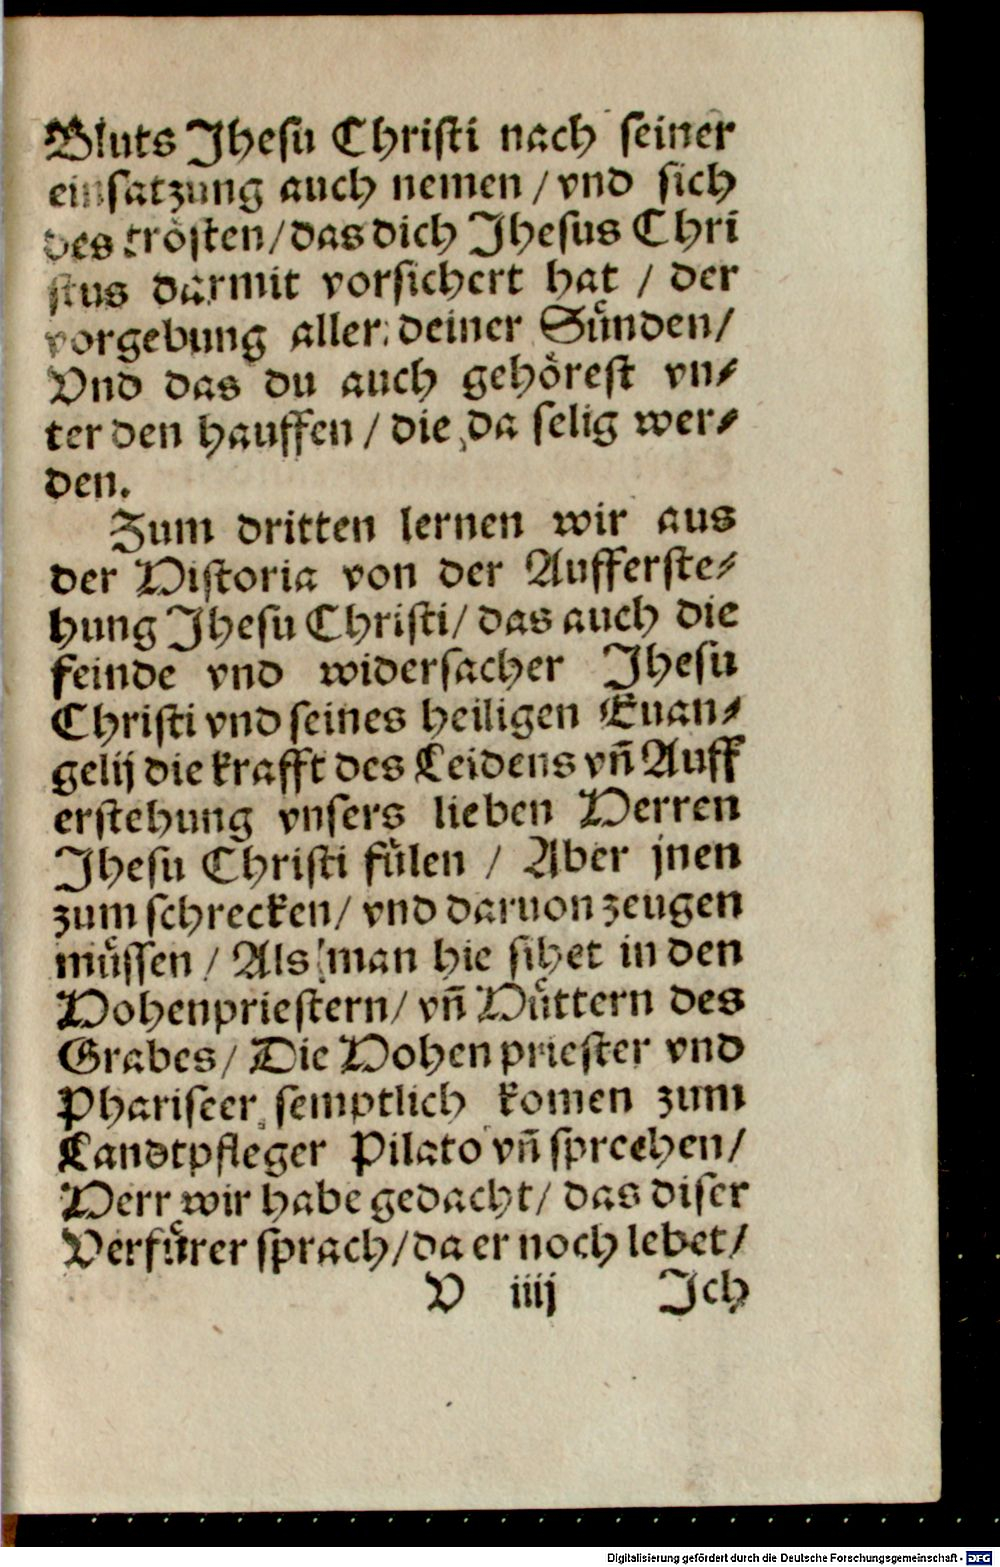 Bluts Jhesu Christi nach seiner
einsatzung auch nemen / vnd sich
des trösten / das dich Jhesus Chri
stus darmit vorsichert hat / der
vorgebung aller deiner Sünden /
Vnd das du auch gehörest vn⸗
ter den hauffen / die da selig wer⸗
den.
Zum dritten lernen wir aus
der Historia von der Aufferste⸗
hung Jhesu Christi / das auch die
feinde vnd widersacher Jhesu
Christi vnd seines heiligen Euan⸗
gelij die krafft des Leidens vñ Auff
erstehung vnsers lieben Herren
Jhesu Christi fülen / Aber jnen
zum schrecken / vnd daruon zeugen
müssen / Als man hie sihet in den
Hohenpriestern / vñ Hüttern des
Grabes / Die Hohenpriester vnd
Phariseer semptlich komen zum
Landtpfleger Pilato vñ sprechen /
Herr wir habe gedacht / das diser
Verfürer sprach / da er noch lebet /
V iiij Jch
Digitalisierung gefördert durch die Deutsche Forschungsgemeinschaft - DFG